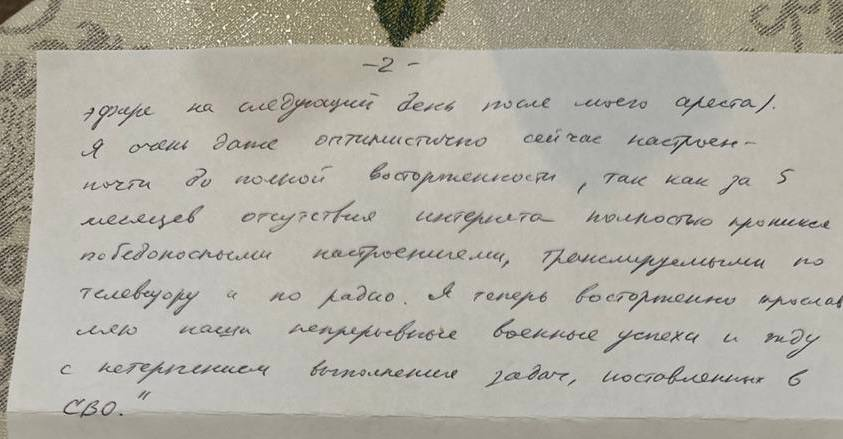 -2-
эфире на следующий день после моего ареста).
Я очень даже оптимистично сейчас настроен-
почти до полной восторженности, так как за 5
месяцев отсутствия интернета полностью проникся
победоносными настроениями, транслируемыми по
телевизору и по радио. Я теперь восторженно прослав
ляю наши непрерывные военные успехи и жду
с нетерпением выполнения задач, поставленных в
СВО."